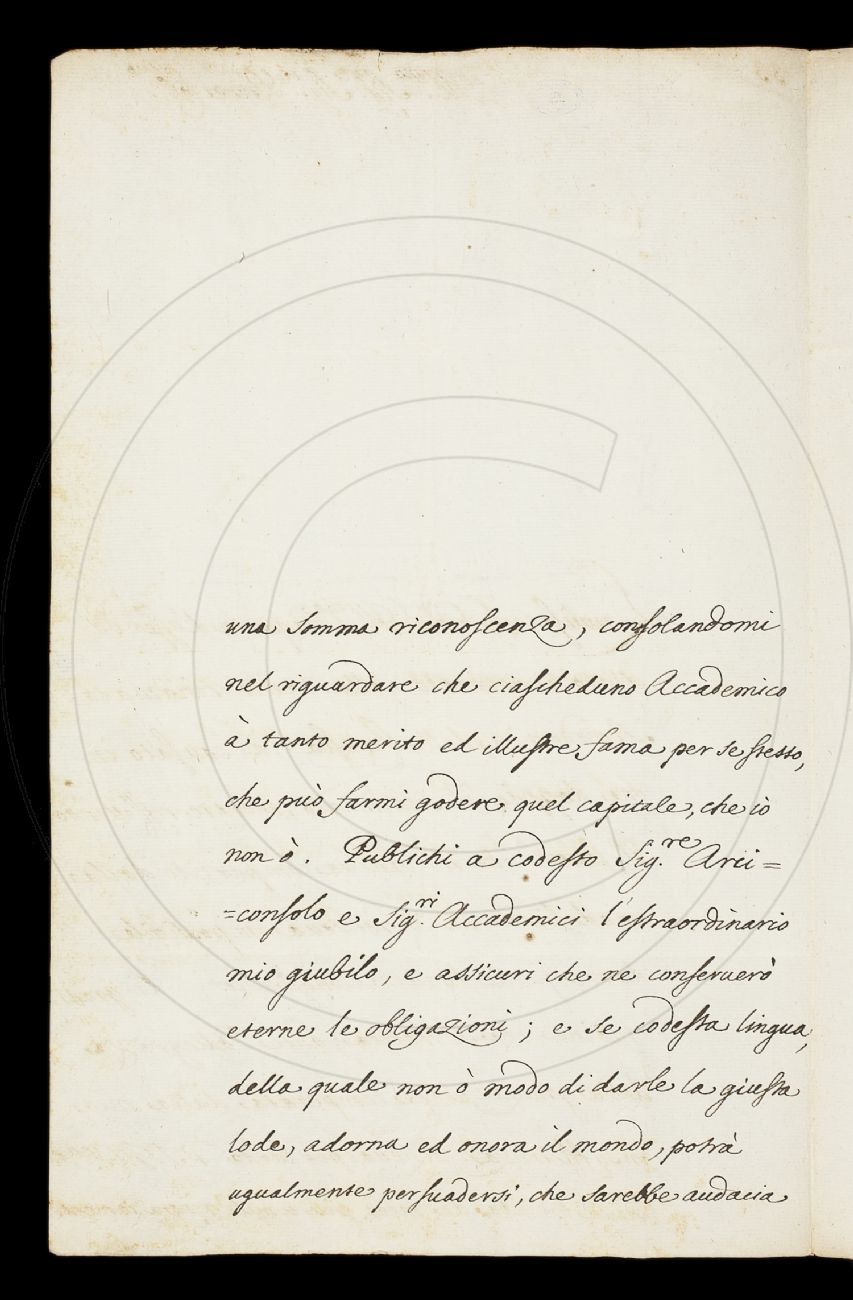 una somma riconoscenza, consolandomi
nel riguardare che ciascheduno Accademico
à tanto merito ed illustre fama per se stesso,
che può farmi godere quel capitale, che iò
non ò. Publichi a codesto Sig.re Arci=
=consolo e Sig.ri Accademici l'estraordinario
mio giubilo, e assicuri che ne conseruerò
eterne le obligazioni; e se codesta lingua,
della quale non ò modo di darle la giusta
lode, adorna ed onora il mondo, potrà
ugualmente persuadersi, che sarebbe audacia